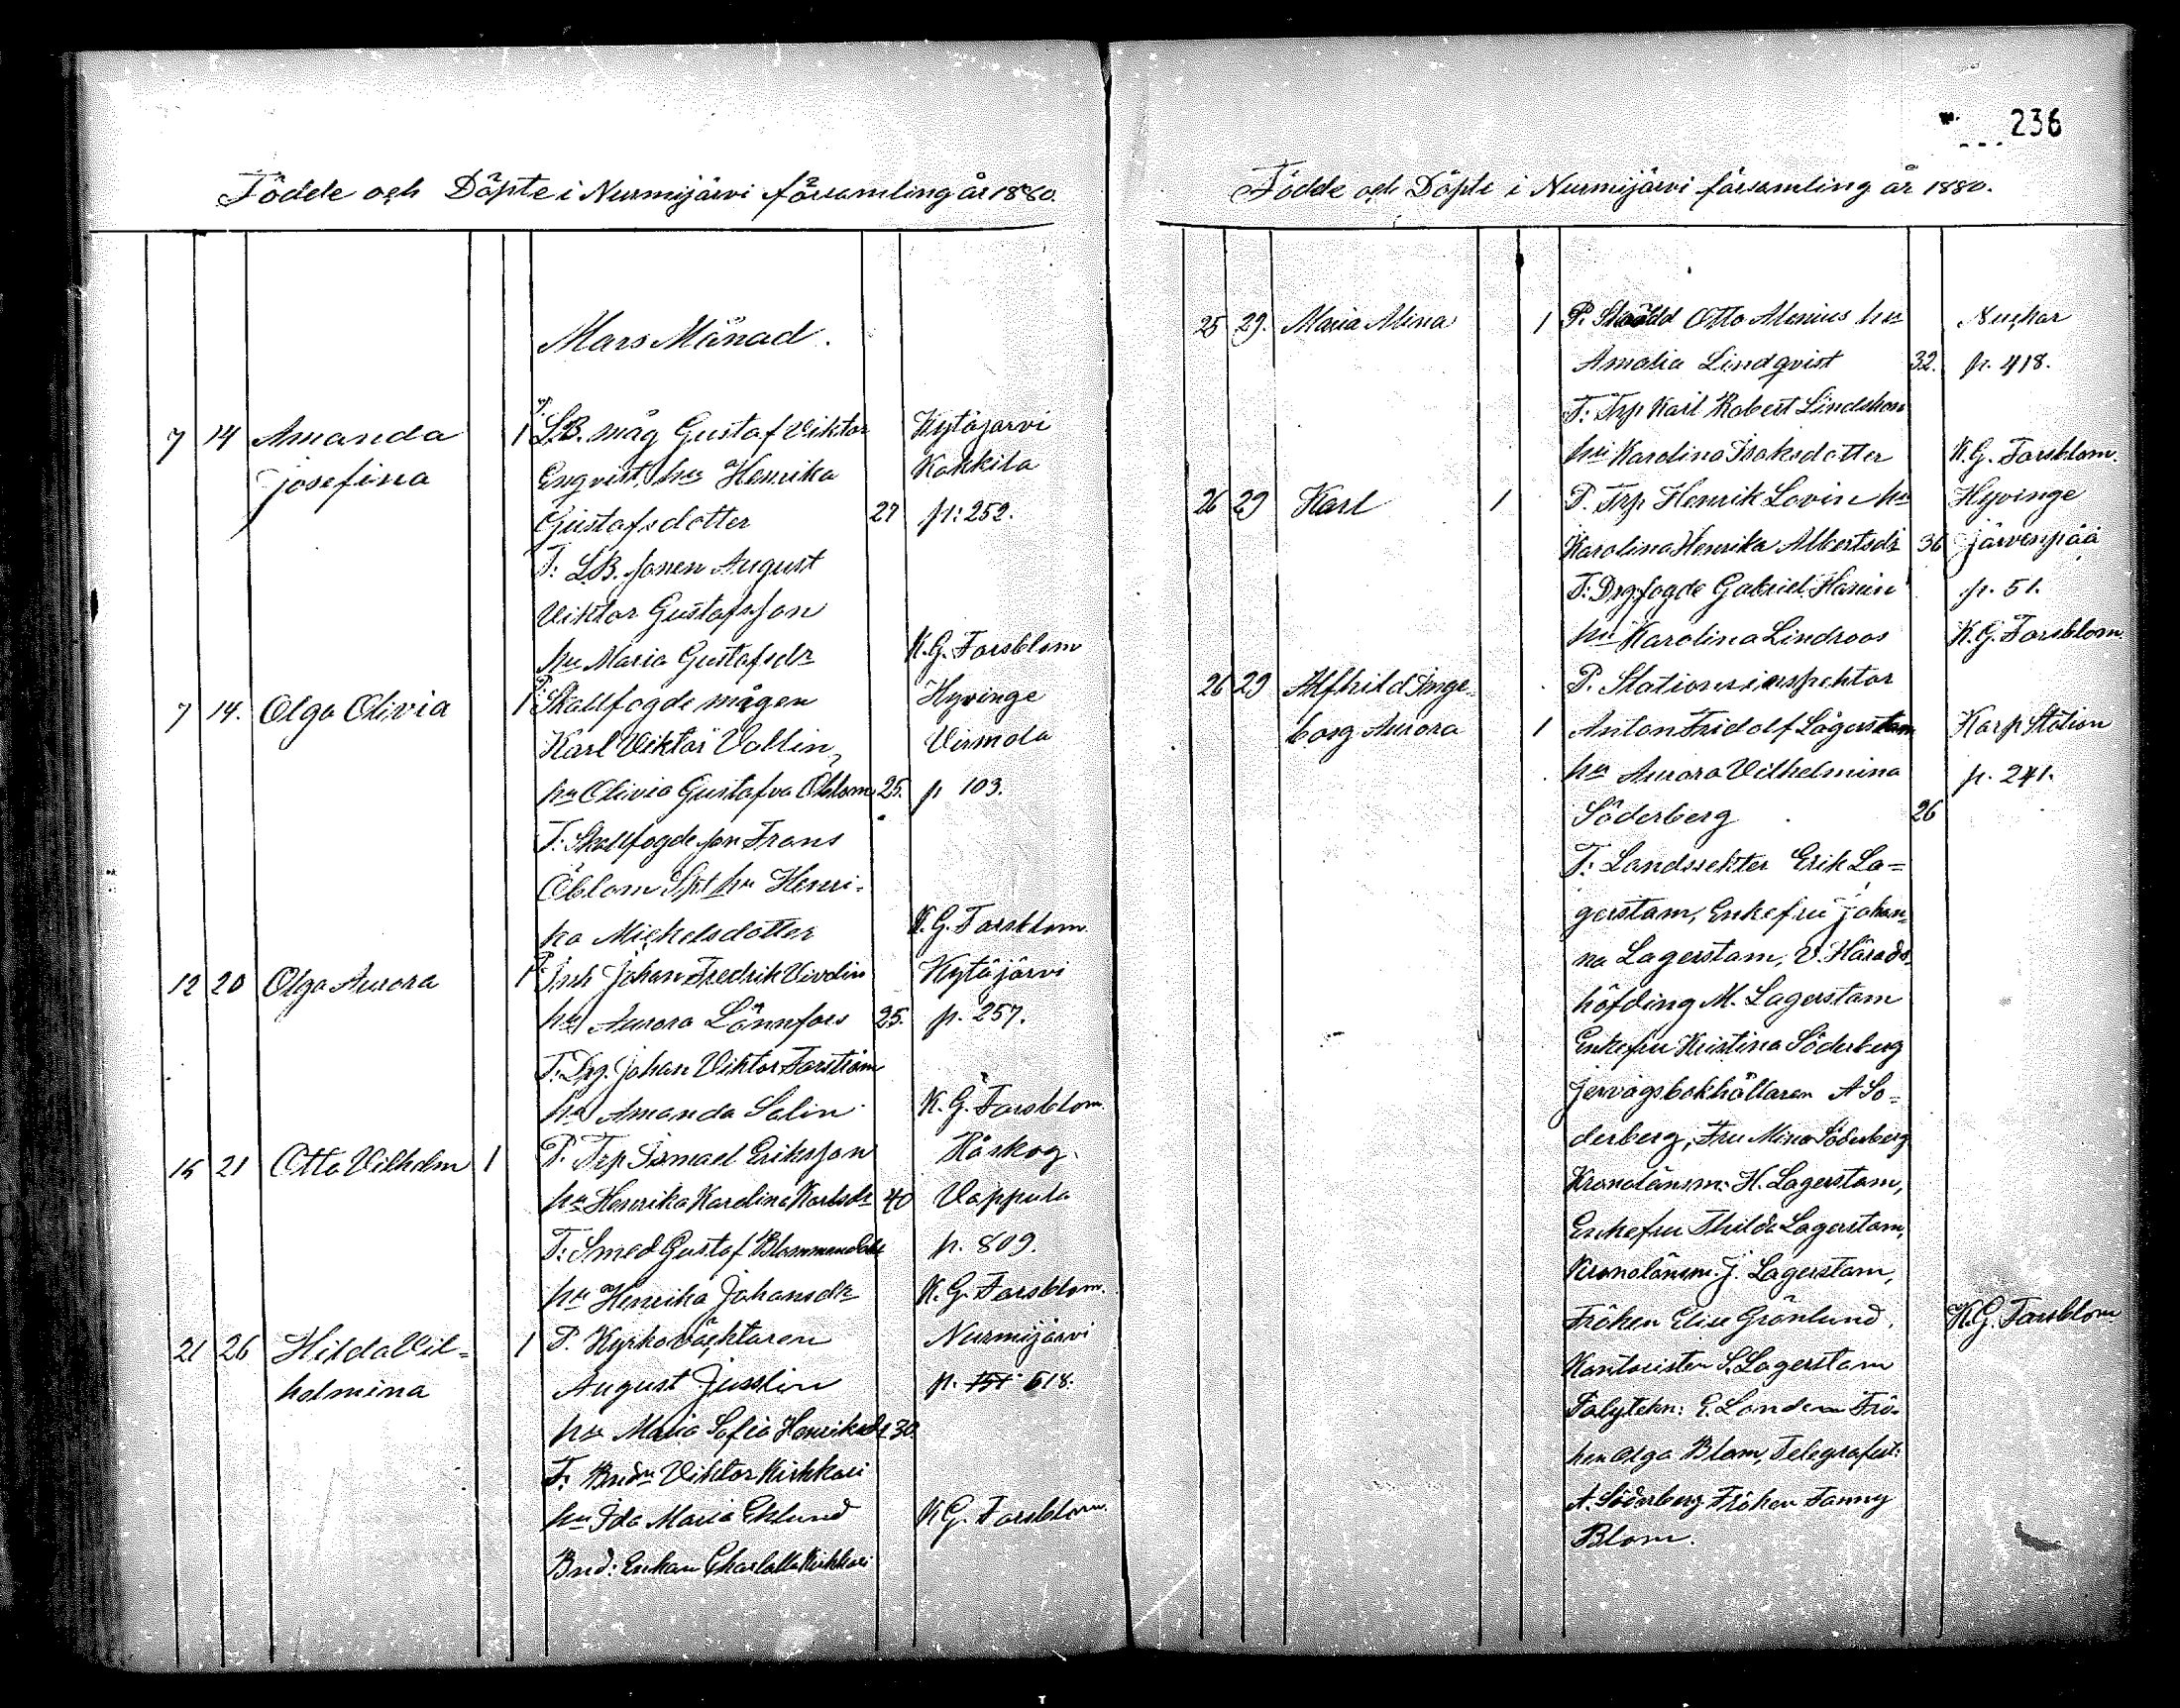 236
Födde och Döpte i Nurmijärvi församling år 1880.
Mars Månad.
7 14 Amanda 1 P. L.B. måg Gustaf Viktor Kytäjärvi
Josefina Enqvist, hu Henrika Kokkila
Gustafsdotter 27 p: 252.
T: L.B. sonen August
Viktor Gustafsson
hu Maria Gustafsdr K.G. Forsblom
7 14. Olga Olivia 1 P. Skallfogde mågen Hyvinge
Karl Viktor Vallin,
hu Olivia Gustafva Öblom 25. p 103.
T: Skallfogde son Frans
Öblom hu Henri-
ka Michelsdotter K.G. Forsblom
12 20 Olga Aurora 1 P. Inh Johan Fredrik Kytäjärvi
hu Aurora Lönnfors 25. p. 257.
T. Drg. Johan Viktor Forström
hu Amanda Salin K.G. Forsblom.
15 21 Otto Vilhelm 1 P. Trp Ismael Eriksson Råskog.
hu Henrika Karolina Karlsdr 40 Vappula
T: Smed Gustaf p. 809.
hu Henrika Johansdr K.G. Forsblom.
21 26 Hilda Vil- 1 P. Kyrkoväktaren Nurmijärvi
helmina August Jusslin p. 618.
hu Maria Sofia Henriksdr 30.
T. Bndn Viktor Kirkkari
hu Ida Maria Eklund K G. Forsblom.
Bnd: Enkan Charlotta Kirkkari
Födde och Döpte i Nurmijärvi församling år 1880.
25 29. Maria Alina 1 P. Otto Alenius hu Nuckar
Amalia Lindqvist 32. p. 418.
T: Trp Karl Robert
hu Karolina Isaksdotter K.G. Forsblom.
26 29 Karl 1 P. Trp Henrik Lovin hu Hyvinge
Karolina Henrika Albertsdr 36 Järvenpää
T: Drg.fogde Gabriel p. 51.
hu Karolina Lindroos K.G. Forsblom
26 29 Alfhild Inge- P. Stationsinspektor
borg Aurora 1 Anton Fridolf Lagerstam Karp Station
hu Aurora Vilhelmina p. 241.
Söderberg 26
T: Landssekter Erik La-
gerstam, Enkefru Johan-
na Lagerstam, V. Härads-
höfding M. Lagerstam
Enkefru Kristina Söderberg
Jernvägsbokhållaren A Sö-
derberg, Fru Mina Söderberg
Kronolänsm: H. Lagerstam,
Enkefru Thilda Lagerstam,
Kronolänsm. J. Lagerstam,
Fröken Elise Grönlund, K.G. Forsblom
Kontoristen S. Lagerstam
Polytekn: E. Frö-
ken Olga Blom, Telegrafist:
A. Söderberg Fröken Fanny
Blom.